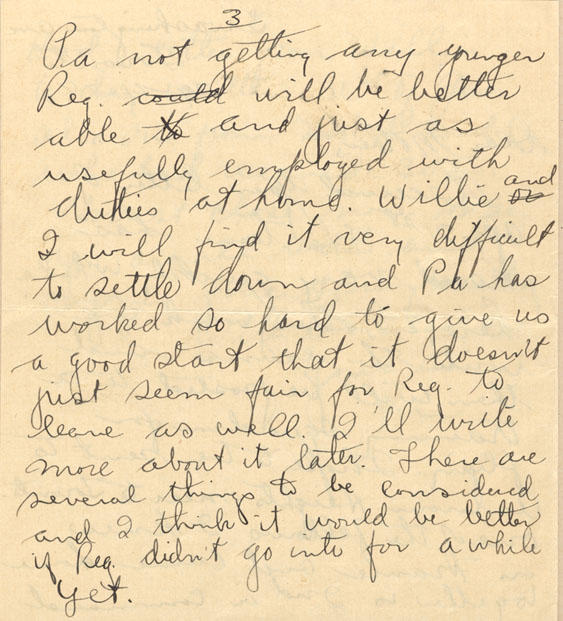 3
Pa not getting any younger
Reg. could will be better
able to and just as
usefully employed with
duties at home. Willie and
I will find it very difficult
to settle down and Pa has
worked so hard to give us
a good start that it doesn't
just seem fair for Reg. to
leave as well. I'll write
more about it later. There are
several things to be considered
and I think it would be better
if Reg. didn't go into for a while
yet.